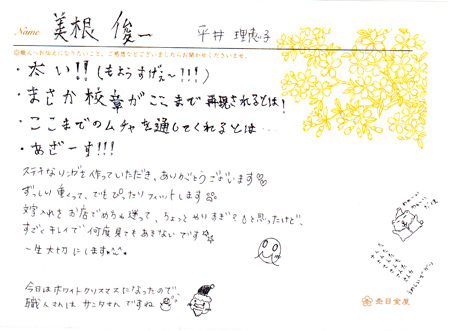 Name 美根 俊一 平井 理恵子
◎職人へお伝えになりたいこと、ご感想などございましたらお聞かせくださいませ。
・太い!!(もようすげぇ~!!!)
・まさか校章がここまで再現されるとは!
・ここまでのムチャを通してくれるとは…
・あざーす!!!
ステキなリングを作っていただき、ありがとうございます♡♡
ずっしり重くって、でもぴったりフィットします
文字入れをお店でめちゃ迷って、ちょっとやりすぎ?とも思ったけど、
すごくキレイで何度見てもあきないです☆
一生大切にします^_^
今日はホワイトクリスマスになったので、
職人さんはサンタさんですね
杢目金屋